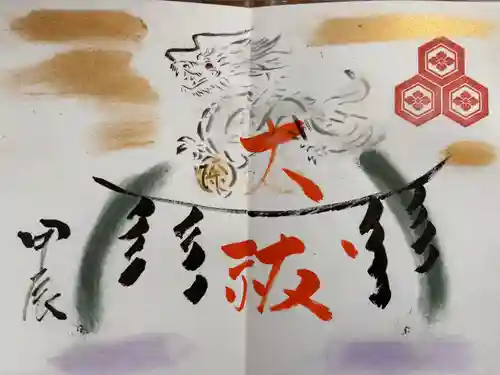 大祓
甲辰